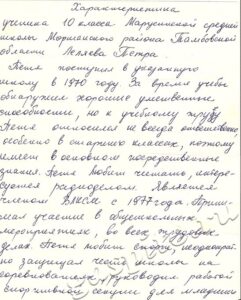 Характеристика
ученика 10 класса Марусинской средней
школы Моршанского района Тамбовской
области Лепяева Петра
Петя поступил в указанную
школу в 1970 году. За время учебы
обнаружил хорошие умственные
способности, но к учебному труду
Петя относился не всегда ответственно
особенно в старших классах, поэтому
имеет в основном посредственные
знания. Петя любит читать, интере-
суется радиоделом. Является
членом ВЛКСМ с 1977 года. Прини-
мал участие в общешкольных
мероприятиях, во всех трудовых
делах. Петя любит спорт, неоднократ-
но защищал честь школы на
соревнованиях, руководил работой
спортивной секции для младших